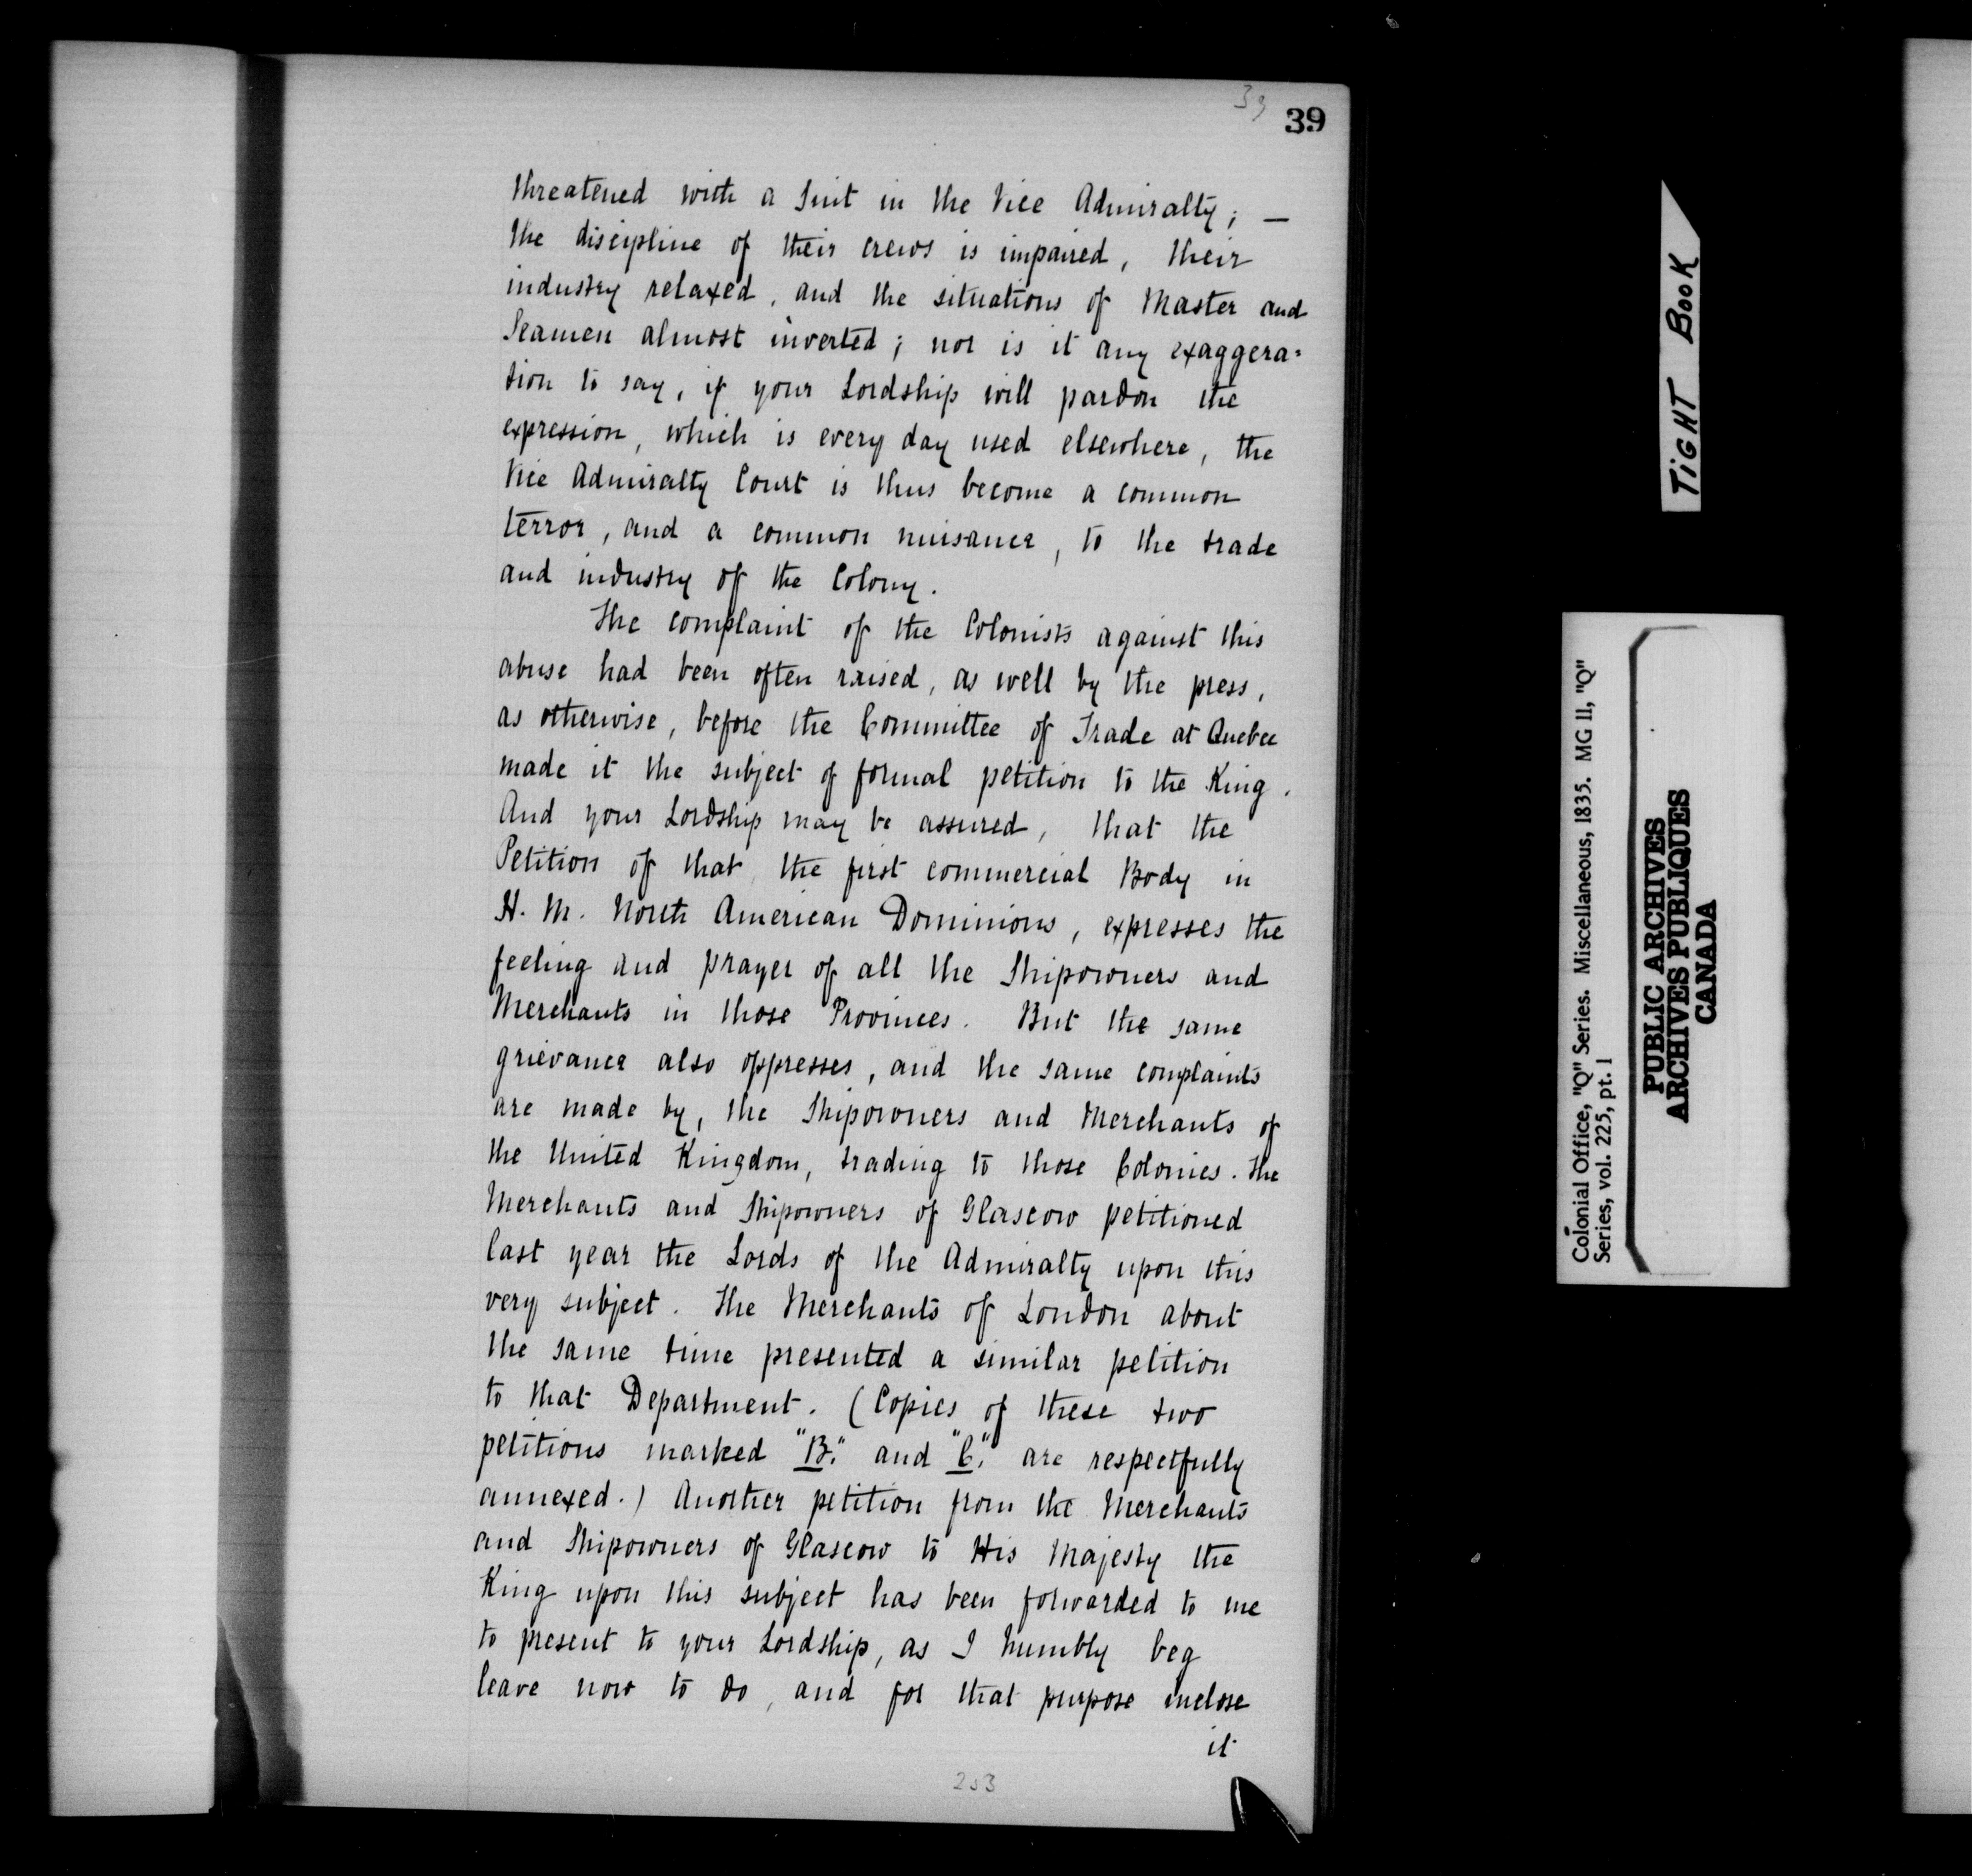 39
39
threatened with a Suit in the Vice Admiralty; —
the discipline of their crews is impaired, their
industry relaxed, and the situations of Master and
Seamen almost inverted; nor is it any exaggera=
tion to say, if your Lordship will pardon the
expression, which is every day used elsewhere, the
Vice Admiralty Court is thus become a common
terror, and a common nuisance, to the trade
and industry of the Colony.
The complaint of the Colonists against this
abuse had been often raised, as well by the press,
as otherwise, before the Committee of Trade at Quebec
made it the subject of formal petition to the King.
And your Lordship may be assured, that the
Petition of that, the first commercial Body in
H. M. North American Dominions, expresses the
feeling and prayer of all the Shipowners and
Merchants in those Provinces. But the same
grievance also oppresses, and the same complaints
are made by, the Shipowners and Merchants of
the United Kingdom, trading to those Colonies. The
Merchants and Shipowners of Glascow petitioned
last year the Lords of the Admiralty upon this
very subject. The Merchants of London about
the same time presented a similar petition
to that Department. (Copies of these two
petitions marked "B." and "C." are respectfully
annexed.) Another petition from the Merchants
and Shipowners of Glascow to His Majesty the
King upon this subject has been forwarded to me
to present to your Lordship, as I humbly beg
leave now to do, and for that purpose inclose
it
253
TIGHT BOOK
Colonial Office, "Q" Series. Miscellaneous, 1835. MG 11, "Q"
Series, vol. 225, pt. 1
PUBLIC ARCHIVES
ARCHIVES PUBLIQUES
CANADA